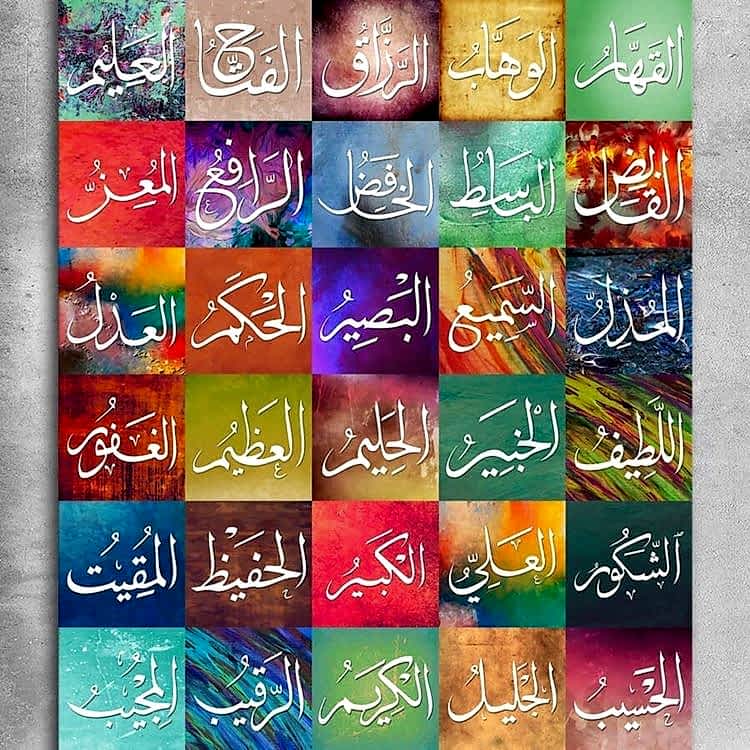 القَهَّارُ الوَهَّابُ الرَّزَّاقُ الفَتَّاحُ العَلِيمُ
القَابِضُ البَاسِطُ الخَافِضُ الرَّافِعُ المُعِزُّ
المُذِلُّ السَّمِيعُ البَصِيرُ الحَكَمُ العَدْلُ
اللَّطِيفُ الخَبِيرُ الحَلِيمُ العَظِيمُ الغَفُورُ
الشَّكُورُ العَلِيُّ الكَبِيرُ الحَفِيظُ المُقِيتُ
الحَسِيبُ الجَلِيلُ الكَرِيمُ الرَّقِيبُ المُجِيبُ